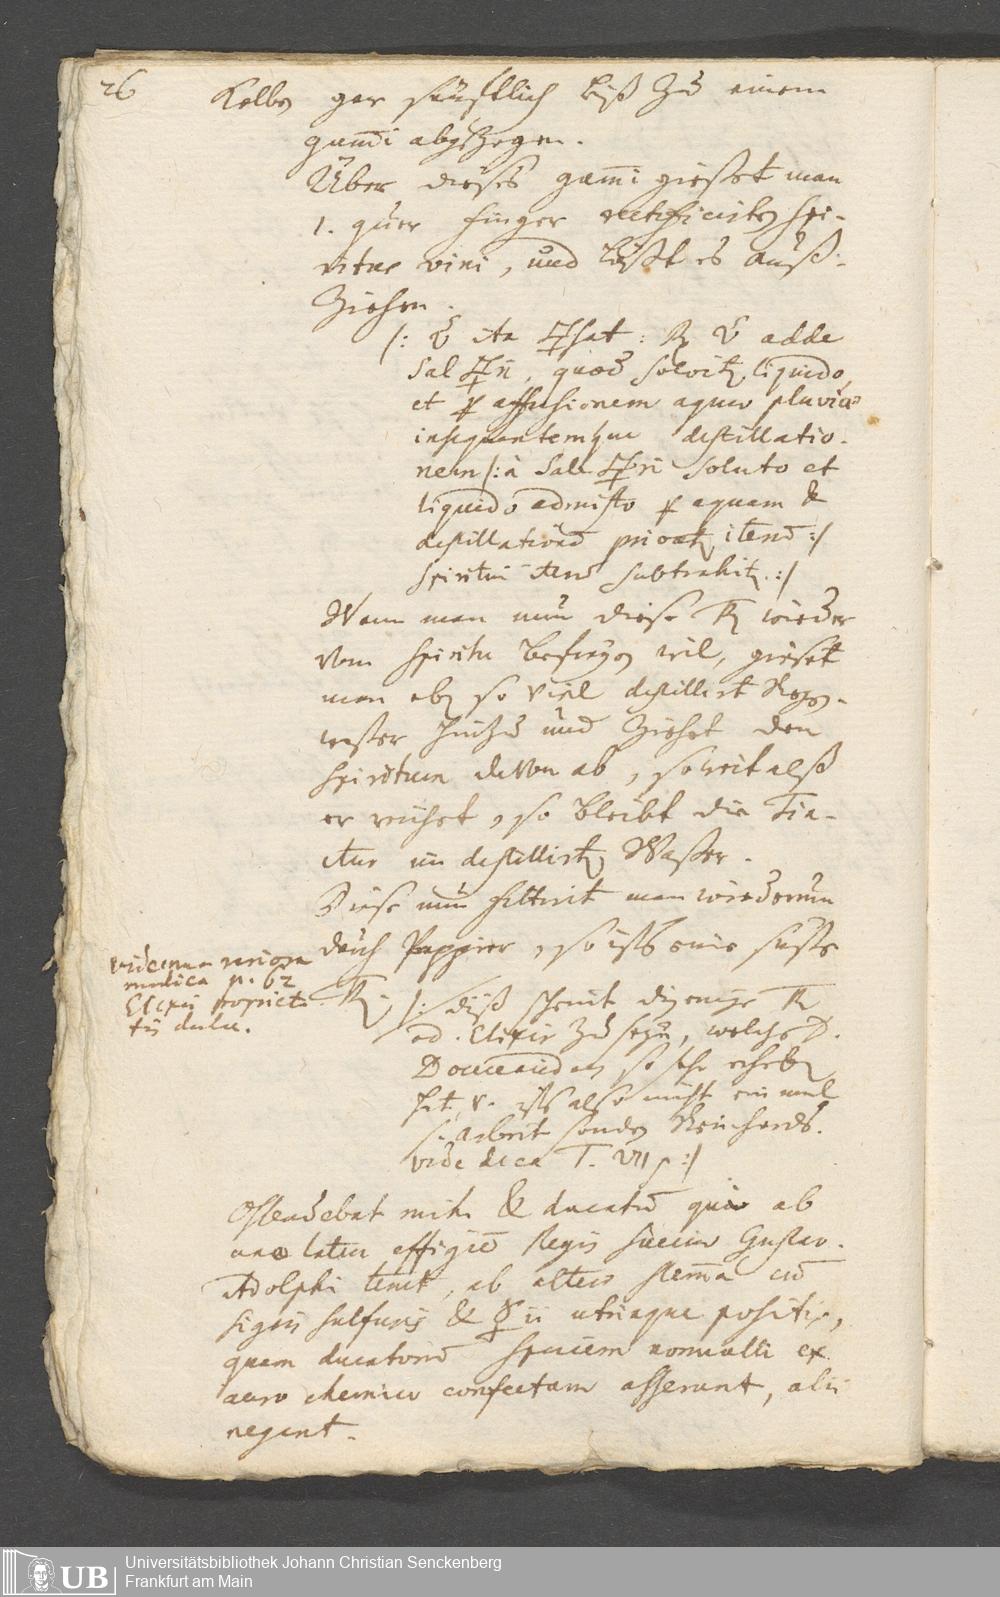 26
Kolben gar sänfftlich biß zu einem
gum̄i abgezogen.
Über dieses gum̄i giesset man
1. quer finger rectificirten spi-
ritus vini, und läßt es auß-
ziehen.
/: ita adde
Sal quod solvitur liquido,
et affusionem aquae pluviae
insequentemque destillatio-
nem /: à Sale soluto et
liquido admisto aquam &
destillationem
spiritui iterum subtrahitur :/
Wenn man nun diese wieder
vom spiritu befreyen wil, giesset
man eben so viel destillirt Regen-
wasser hinzu und ziehet den
spiritum davon ab, so weit alß
er reichet, so bleibt die Tin-
ctur im destillirten Wasser.
Diese nun filtrirt man wiederum
durch Pappier, so ists eine süsse
/: diß scheint diejenige
od. Elixir zu seyn, welche D.
so sehr erheben
ists also nicht ein mal
s. arbeit sondern
vide T. VII p :/
videantur
medica p. 62
Elixir propieta-
tis dulce.
Ostendebat mihi & ducatum qui ab
uno latere effigiem Regis Sueciae Gustav.
Adolphi tenet, ab altero stem̄a cum
signis sulfuris & ii utrinque positis,
quam ducatorum speciem nonnulli ex
auro chemico confectam asserunt, alii
negant.
UB Universitätsbibliothek Johann Christian Senckenberg
Frankfurt am Main